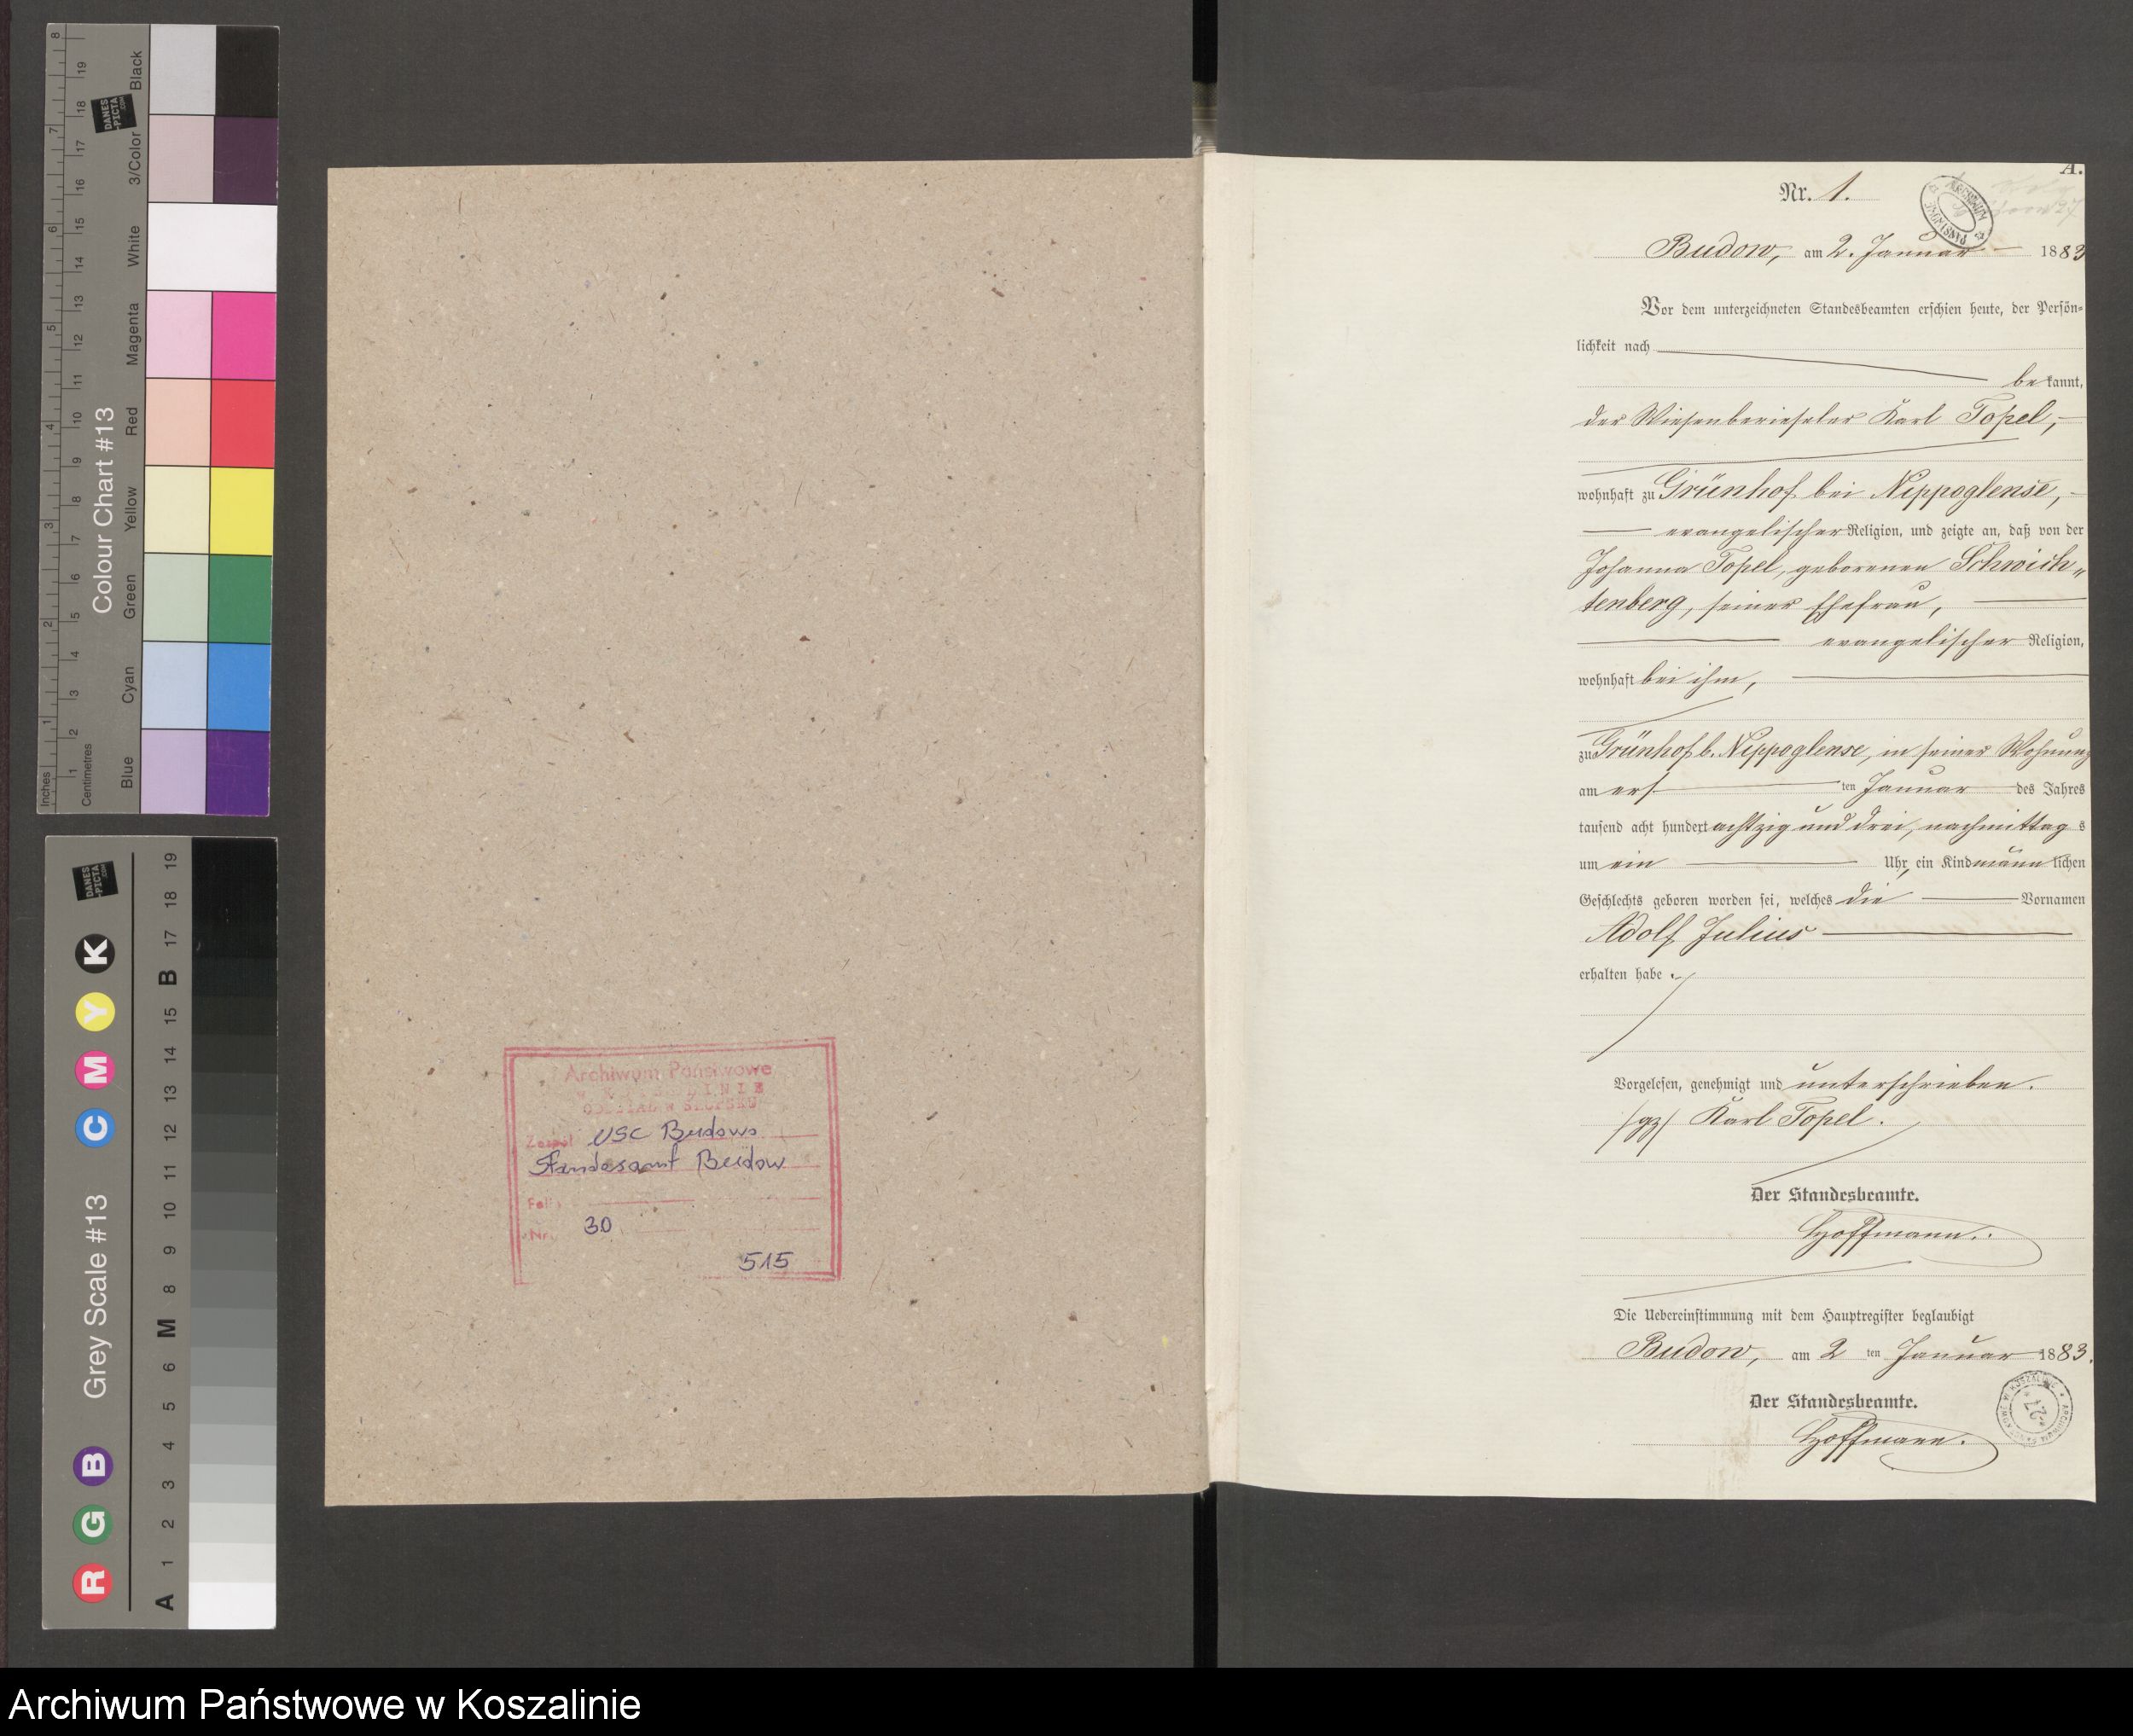 Colour Chart #13
Inches
Centimetres
Blue
Cyan
Green
Yellow
Red
Magenta
White
3/Color
Black
DANES
-PICTA
.COM
Grey Scale #13
R G B C M Y K
A 1 2 3 4 5 6 M 8 9 10 11 12 13 14 15 B 17 18 19
Archiwum Państwowe
Zespół USC Budowo
Standesamt Budow
Nr. 30
515
A.
Nr. 1.
Budow, am 2. Januar 1883
Vor dem unterzeichneten Standesbeamten erschien heute, der Persön-
lichkeit nach
be kannt,
der Wiesenberieseler Karl Topel,
wohnhaft zu Grünhof bei Nippoglense,
evangelischer Religion, und zeigte an, daß von der
Johanna Topel, geborenen Schwich„
tenberg, seiner Ehefrau,
evangelischer Religion,
wohnhaft bei ihm,
zu Grünhof b. Nippoglense, in seiner Wohnung
am ers ten Januar des Jahres
tausend acht hundert achtzig und drei, nachmittag s
um ein Uhr, ein Kind männ lichen
Geschlechts geboren worden sei, welches die Vornamen
Adolf Julius
erhalten habe.
Vorgelesen, genehmigt und unterschrieben.
/gz/ Karl Topel.
Der Standesbeamte.
Hoffmann.
Die Uebereinstimmung mit dem Hauptregister beglaubigt
Budow, am 2 ten Januar 1883.
Der Standesbeamte.
Hoffmann.
Archiwum Państwowe w Koszalinie